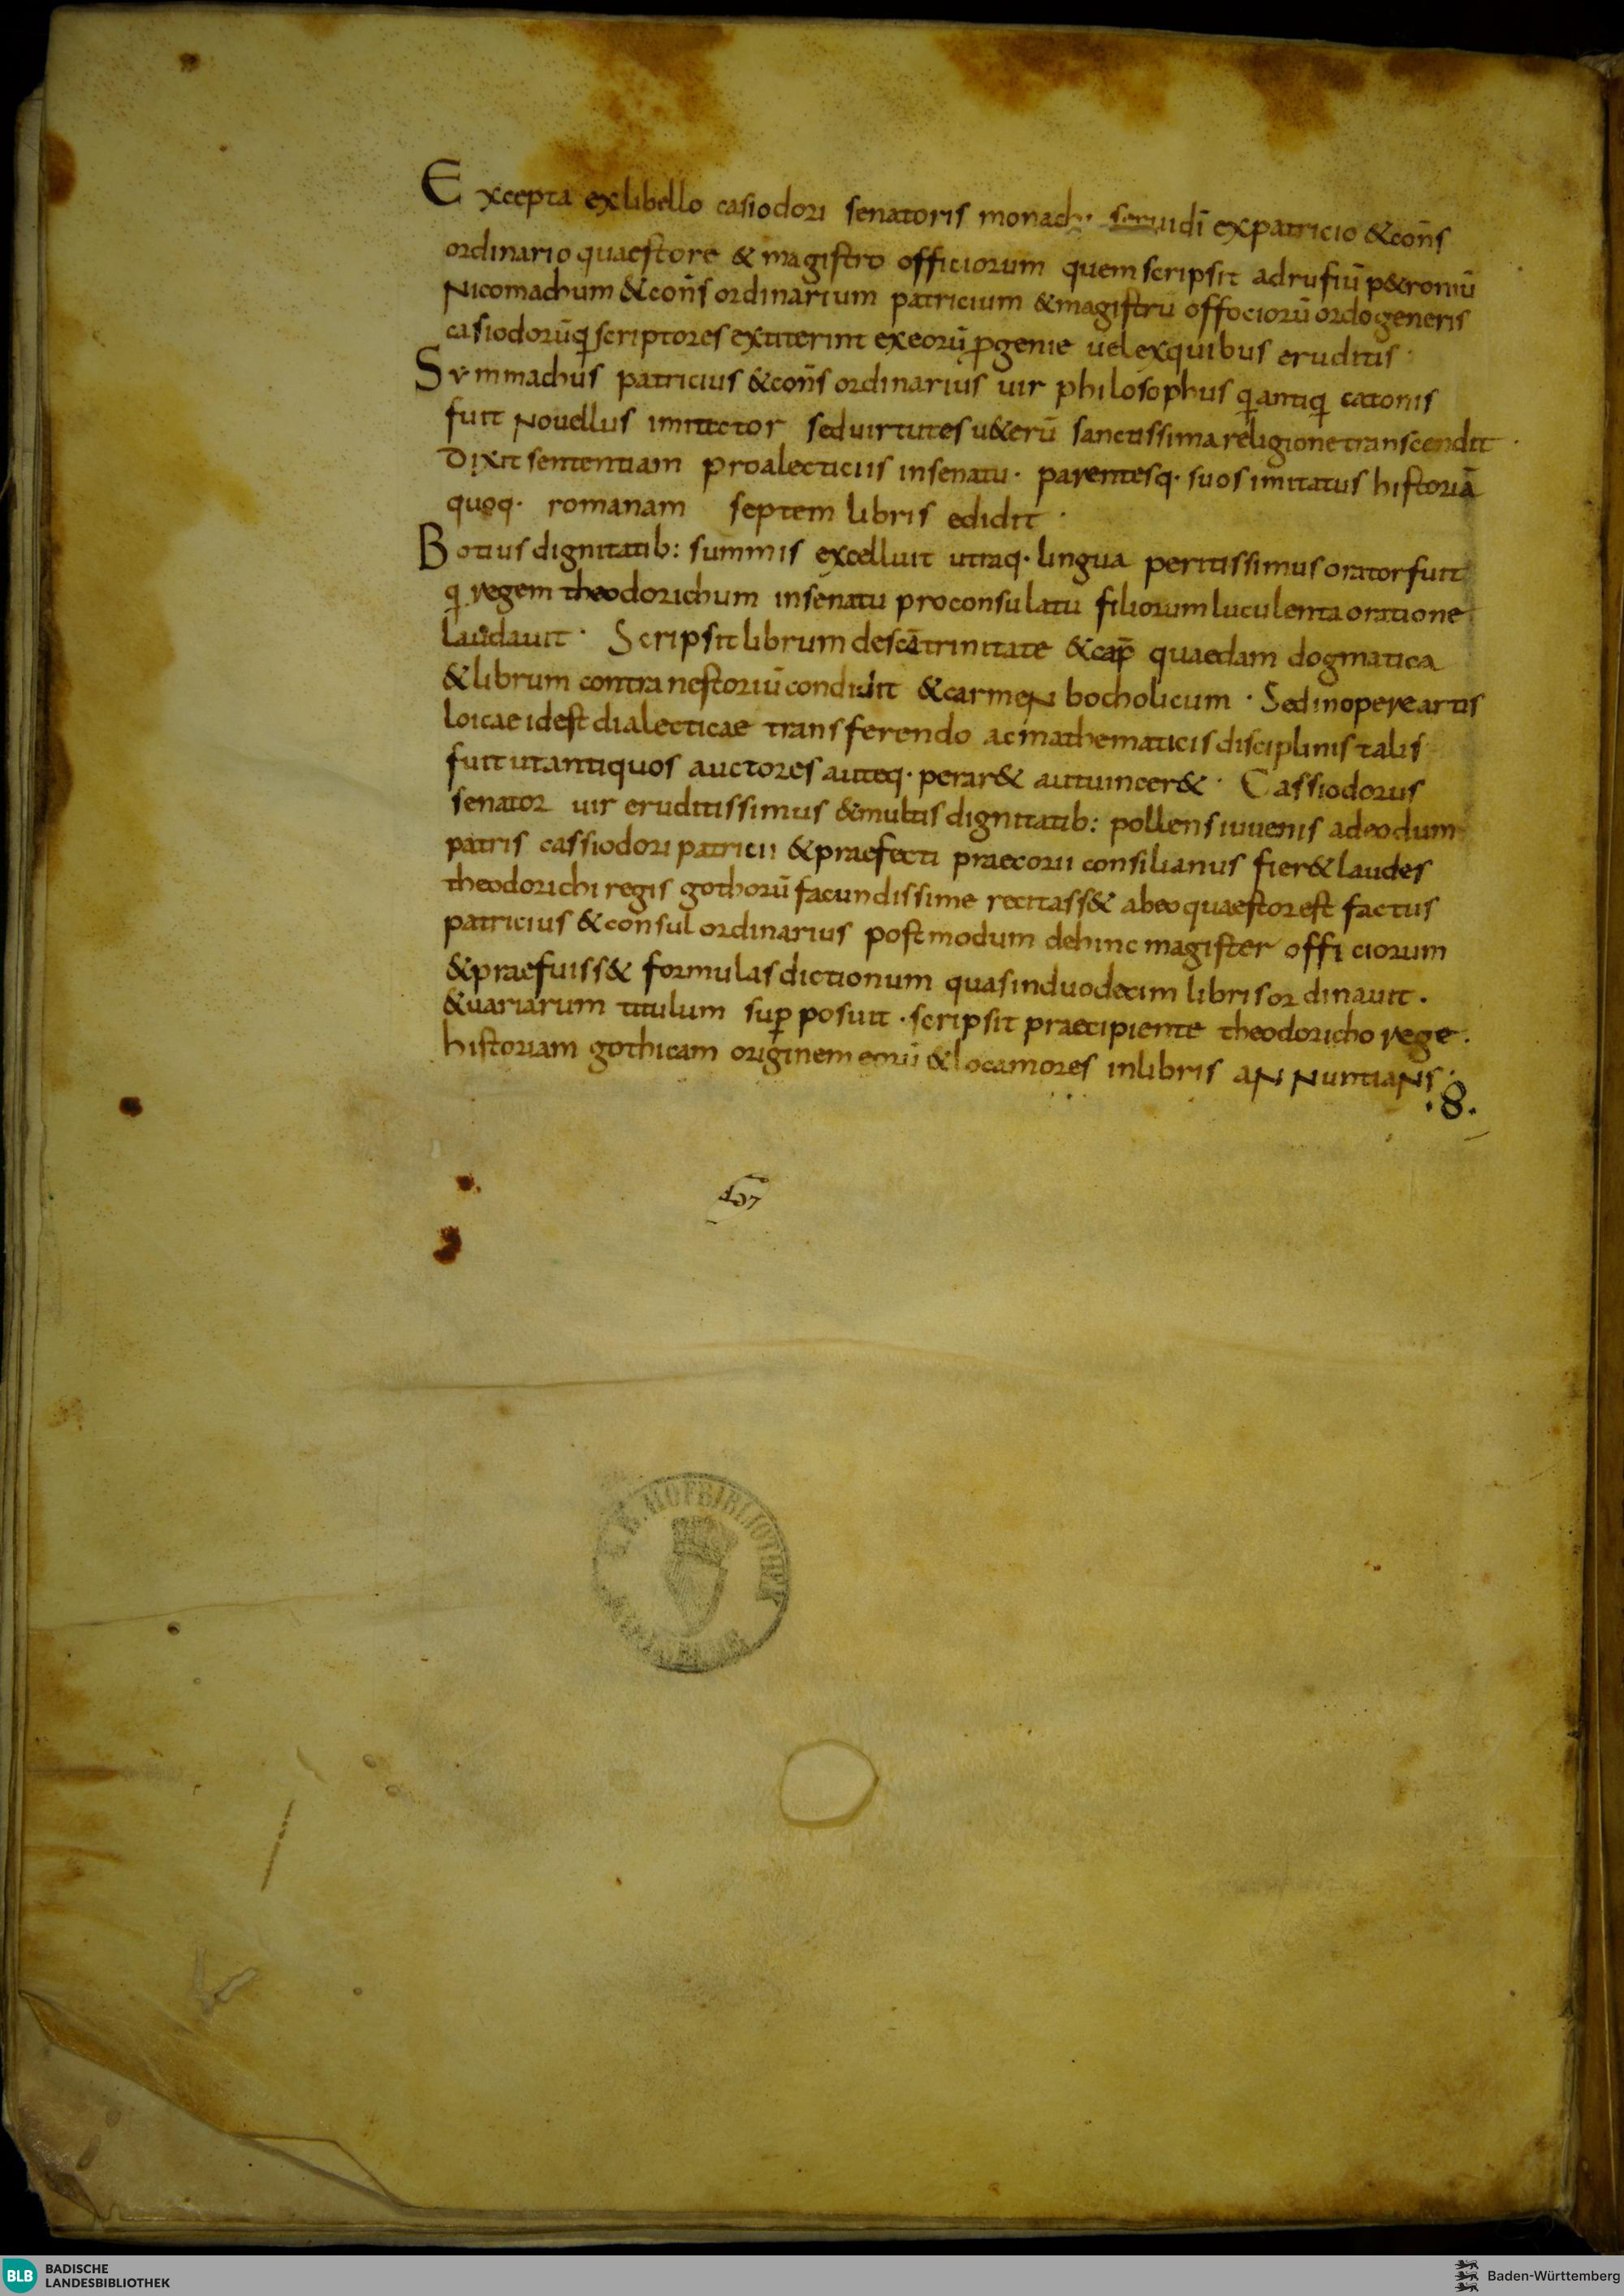 Excepta exlibello casiodori senatoris monachi seruidī expatricio &coñs
ordinario quaestore & magistro officiorum quem scripsit adrufiū p&roniū
Nicomachum &coñs ordinarium patricium &magistrū offociorū ordogeneris
casiodorūq scriptores extiterint exeorū ꝓgenie uelexquibus eruditis ·
Symmachus patricius &coñs ordinarius uir philosophus q antiq catonis
fuit Nouellus imitector seduirtutes u&erū sanctissimareligionetranscendit ·
Dixit sententiam proalecticiis insenatu · parentesq· suos imitatus historiā
quoq· romanam septem libris edidit ·
Botius dignitatib: summis excelluit utraq· lingua peritissimus orator fuit
q regem theodorichum insenatu proconsulatu filiorum luculenta oratione
laudauit · Scripsit librum descā trinitate &cap̄ quaedam dogmatica
&librum contra nestoriū condidit &carmeN bocholicum · Sed inopere artis
loicae idest dialecticae transferendo acmathematicis disciplinis talis
fuit utantiquos auctores auteq· perar& autuincer& · Cassiodorus
senator uir eruditissimus &multis dignitatib: pollens iuuenis adeo dum
patris cassiodori patricii &praefecti praecorii consilianus fier& laudes
theodorichi regis gothorū facundissime recitass& abeo quaestorest factus
patricius &consul ordinarius postmodum dehinc magister officiorum
&praefuiss& formulas dictionum quas induodecim libris ordinauit ·
&uariarum titulum suꝑ posuit · scripsit praecipiente theodoricho rege ·
historiam gothicam originem eorū &loca mores inlibris aNNuntiaNs ·
·8·
HOFBIBLIOTHEK
BLB BADISCHE
LANDESBIBLIOTHEK
Baden-Württemberg